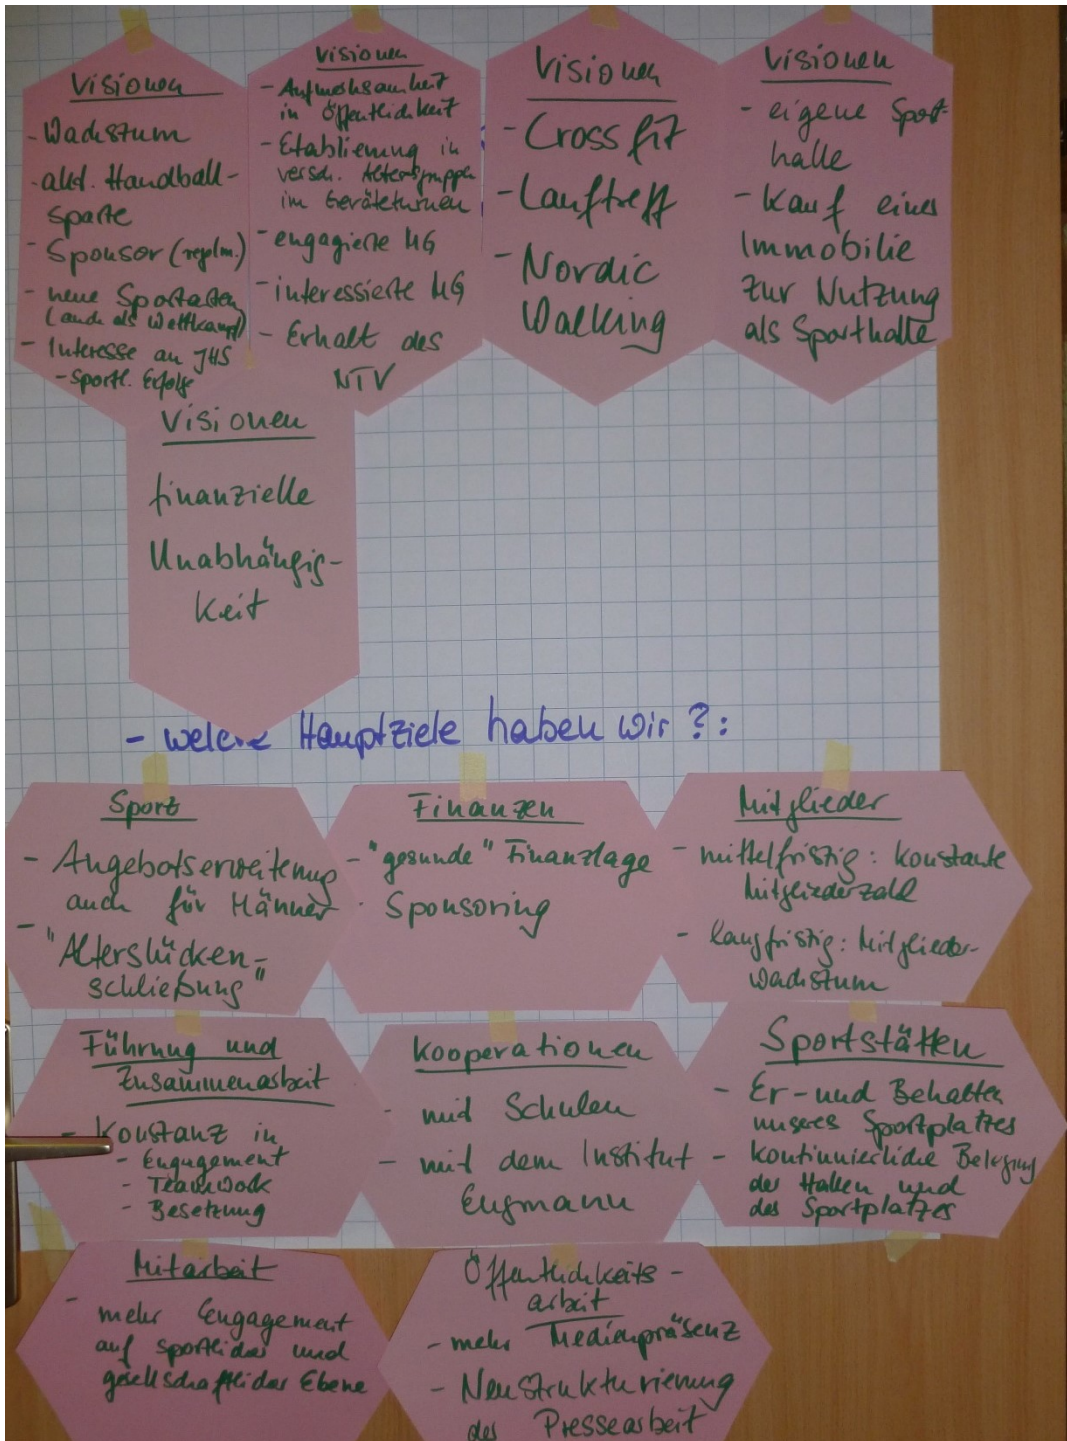 Visionen
- Wachstum
- akt. Handball-
sparte
- Sponsor (regelm.)
- neue Sportarten
(auch als Wettkampf)
- Interesse an JHS
- Sportl. Erfolge
Visionen
- Aufmerksamkeit
in Öffentlichkeit
- Etablierung in
versch. Altersgruppen
im Geräteturnen
- engagierte MG
- interessierte MG
- Erhalt des
NTV
Visionen
- Crossfit
- Lauftreff
- Nordic
Walking
Visionen
- eigene Sport-
halle
- Kauf eines
Immobilie
zur Nutzung
als Sporthalle
Visionen
finanzielle
Unabhängig-
keit
- welche Hauptziele haben wir?:
Sport
- Angebotserweiterung
auch für Männer
- "Alterslücken-
schließung"
Finanzen
- "gesunde" Finanzlage
- Sponsoring
Mitglieder
- mittelfristig: konstante
Mitgliederzahl
- langfristig: Mitglieder-
wachstum
Führung und
Zusammenarbeit
- Konstanz in
- Engagement
- Teamwork
- Besetzung
Kooperationen
- mit Schulen
- mit dem Institut
Engmann
Sportstätten
- Er- und Behalten
unseres Sportplatzes
- kontinuierliche Belegung
der Hallen und
des Sportplatzes
Mitarbeit
- mehr Engagement
auf sportlicher und
gesellschaftlicher Ebene
Öffentlichkeits-
arbeit
- mehr Medienpräsenz
- Neustrukturierung
der Pressearbeit